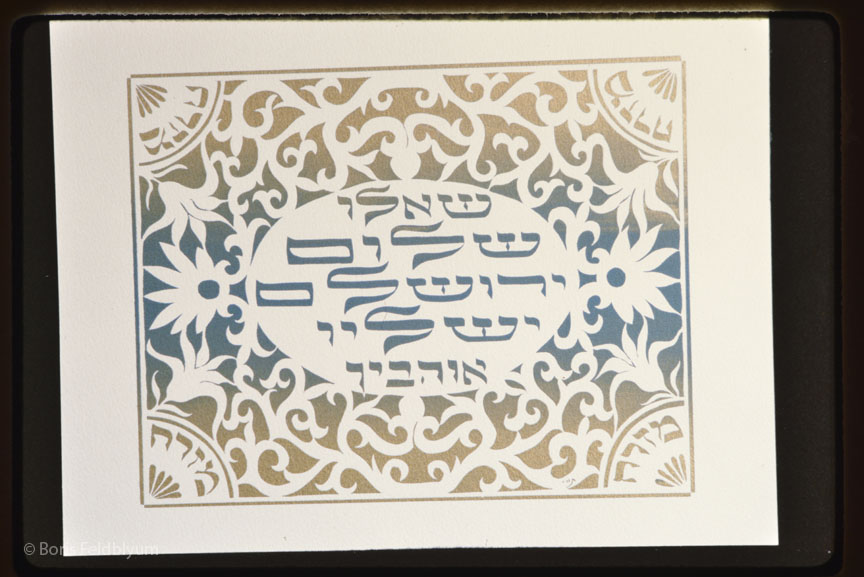 שאלו
שלום
ירושלם
ישליו
אוהביך
מזרח
© Boris Feldblyum